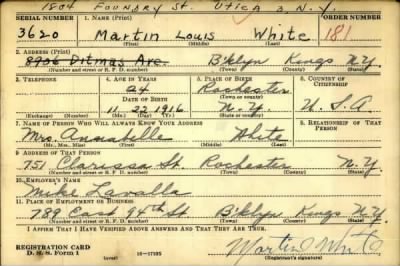 1804 Foundry St. Utica 3, N.Y.
SERIAL NUMBER 1. NAME (Print) ORDER NUMBER
3620 Martin Louis White 181
(First) (Middle) (Last)
2. ADDRESS (Print)
8906 Ditmas Ave. B'klyn Kings N.Y.
(Number and street or R. F. D. number) (Town) (County) (State)
3. TELEPHONE 4. AGE IN YEARS 5. PLACE OF BIRTH 6. COUNTRY OF CITIZENSHIP
24 Rochester
DATE OF BIRTH (Town or county)
11 22 1916 N.Y. U.S.A
(Exchange) (Number) (Mo.) (Day) (Yr.) (State or country)
7. NAME OF PERSON WHO WILL ALWAYS KNOW YOUR ADDRESS 8. RELATIONSHIP OF THAT PERSON
Mrs. White
(Mr., Mrs., Miss) (First) (Middle) (Last)
9. ADDRESS OF THAT PERSON
751 Clarissa St. Rochester N.Y.
(Number and street or R. F. D. number) (Town) (County) (State)
10. EMPLOYER'S NAME
Mike Lavalle
11. PLACE OF EMPLOYMENT OR BUSINESS
789 East 94th St B'klyn Kings N.Y.
(Number and street or R. F. D. number) (Town) (County) (State)
I AFFIRM THAT I HAVE VERIFIED ABOVE ANSWERS AND THAT THEY ARE TRUE.
REGISTRATION CARD
D. S. S. Form 1 (over) 16—17105 Martin White
(Registrant's signature)